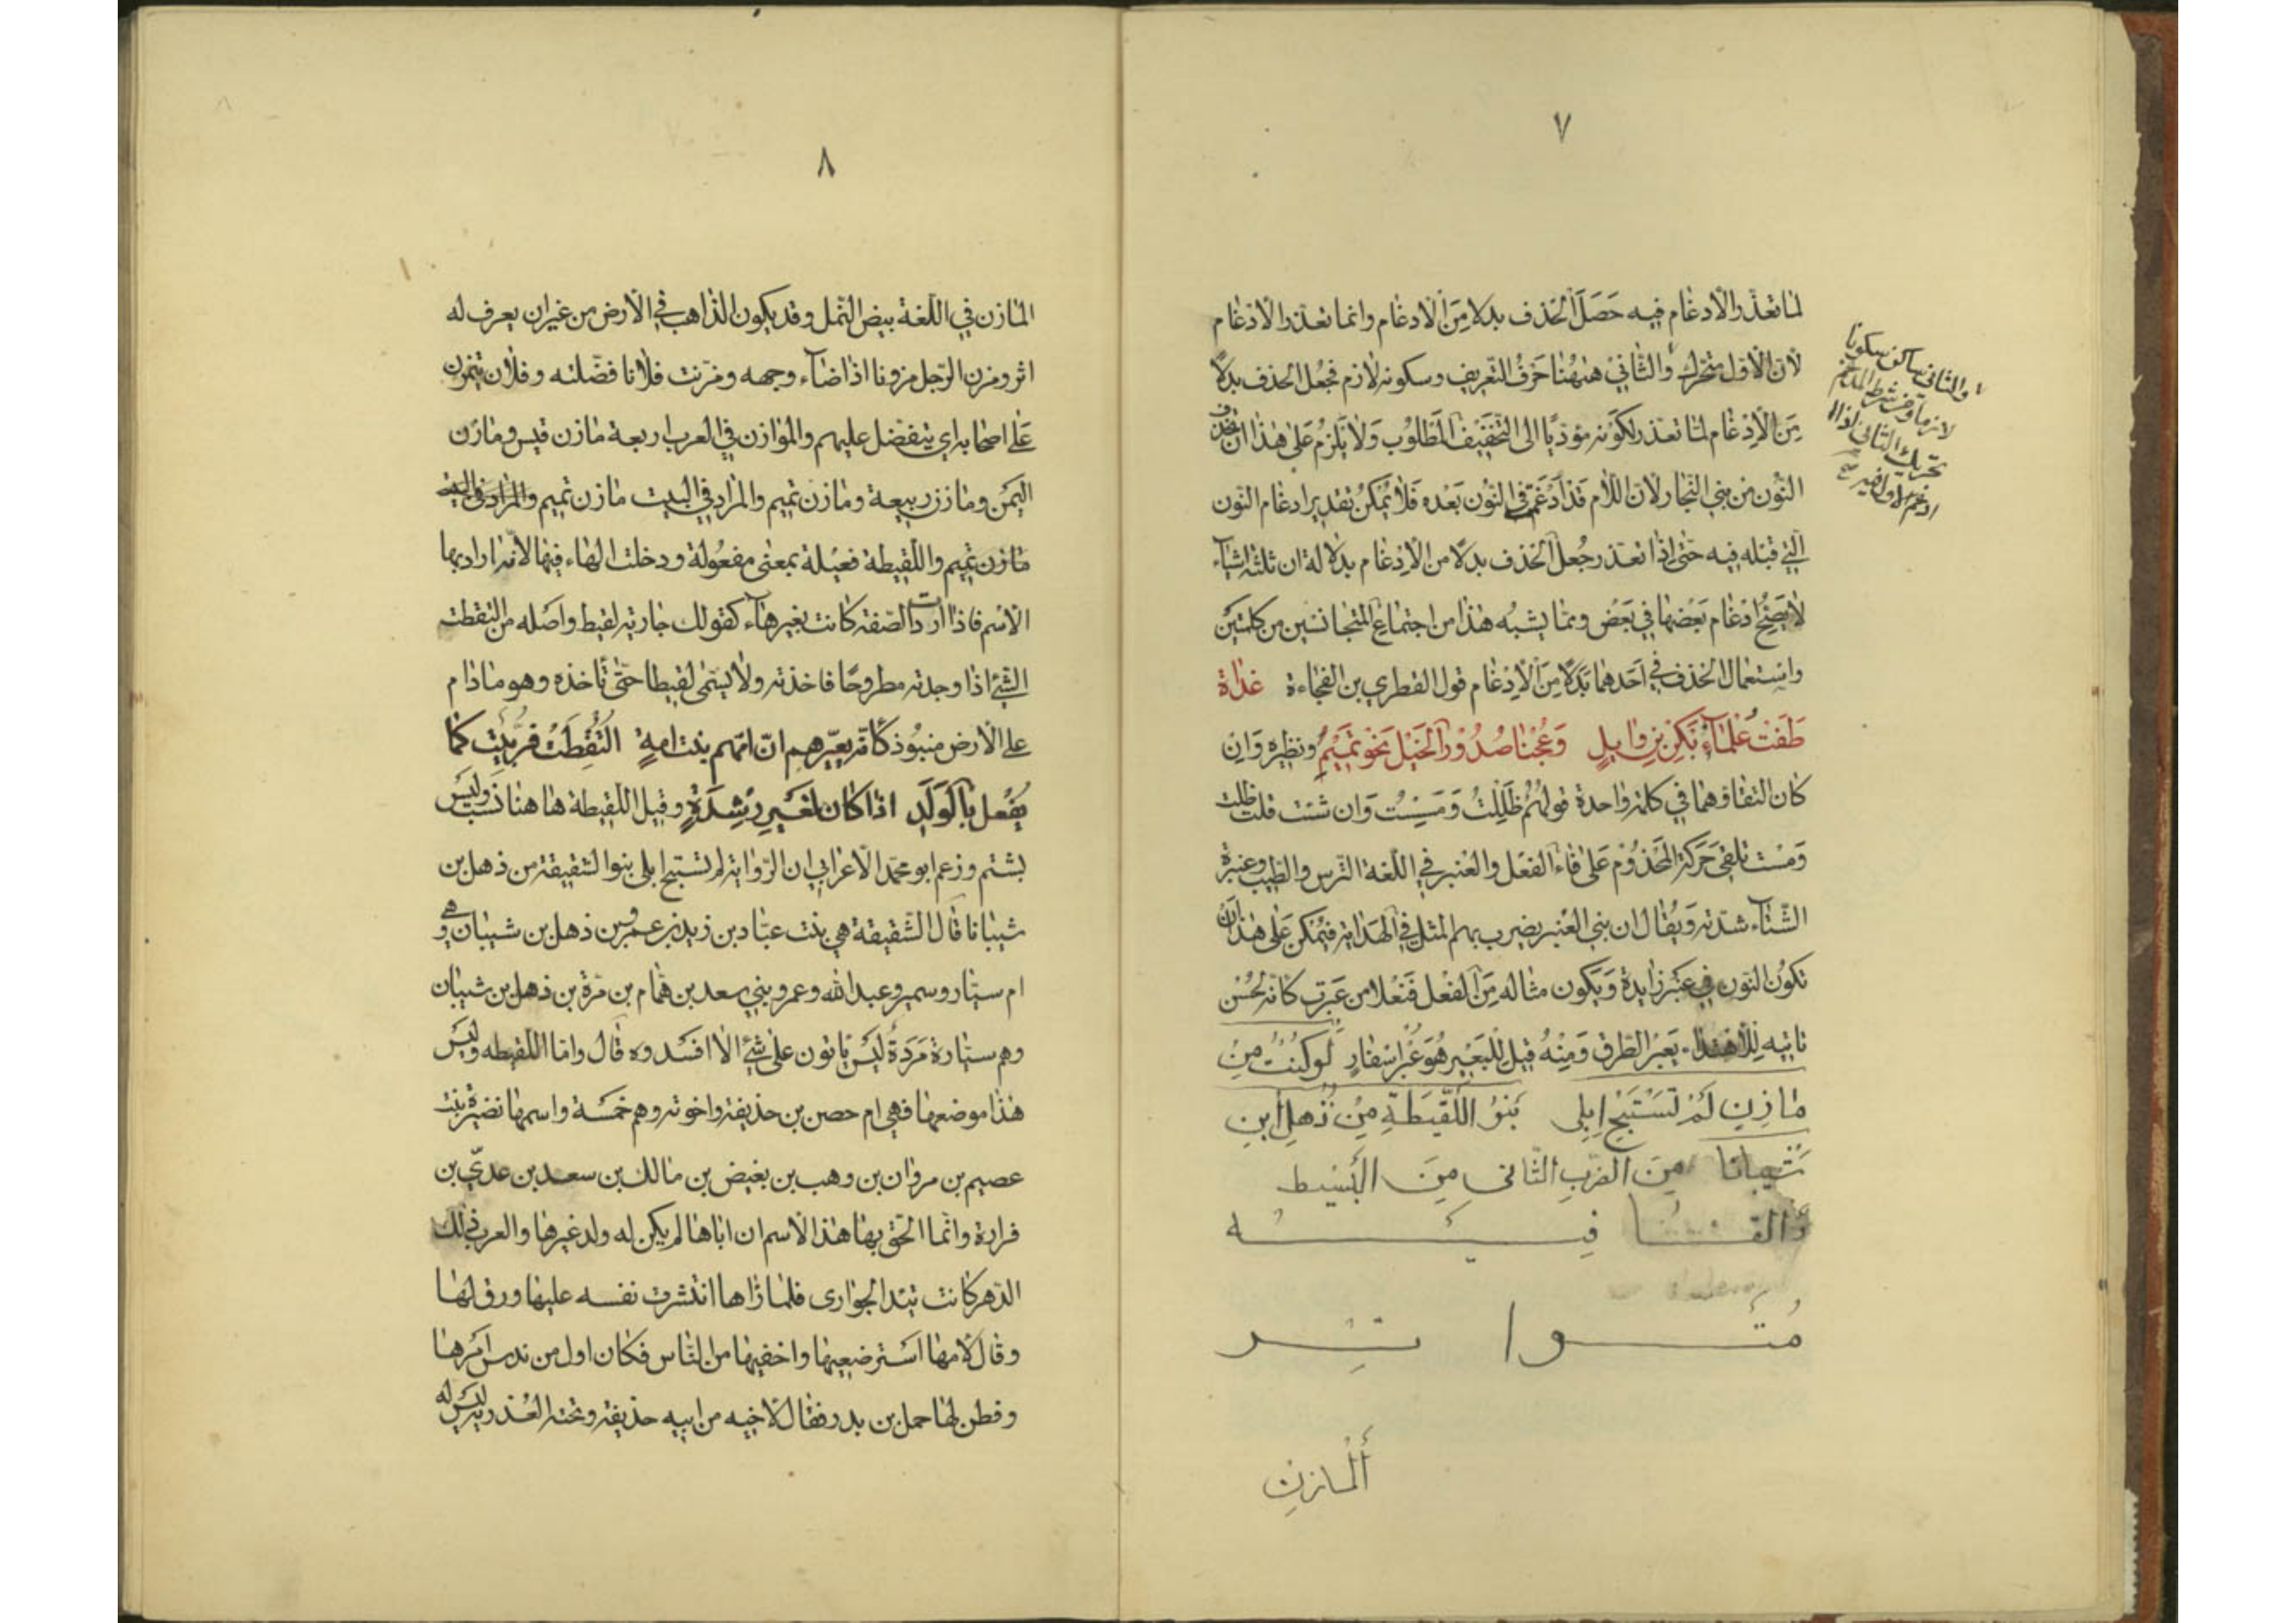 ٧
لما تعذر الادغام فيه حَصَلَ الحَذف بدلا مِنَ الادغام وانما تعذر الادغام
لان الاول متحرك والثاني ههنا حَرفُ التّعريف وسكونه لازم فجُعل الحذف بدلًا
مِنَ الاِدْغام لمّا تعذر لكَونه مؤدّيًا الى التخفِيف المَطلوُب وَلا يَلزمُ عَلى هٰذا ان تحذف
النوُن من بني النجار لان اللام قَد اُدغمَ في النوُن بَعده فَلا يُمكنُ تقدير ادغام النّون
الّتي قبله فيه حتى اذا تعذر جُعلَ الحَذف بدلًا من الاِدْغام بدلالة ان ثلثة اشياء
لا يَصِحّ ادْغام بَعْضها في بَعْض ومما يشبهُ هٰذا من اجتماع المتجانسَين من كلمتَين
واسْتعمال الحَذف في اَحدهما بَدَلًا مِنَ الاِدْغام قول القطري بن الفجاءة غدٰاة
طَفَت عَلْمَاءِ بَكرُ بنِ وٰايلٍ وَعُجْنا صُدُوْرَ الخَيْل نحوَ تَمَيْمِ ونظيره وَان
كان التقاؤهما في كلمة واحدة قولهُمْ ظَلِلْتُ وَمَسِسْت وَان شئت قلت ظلت
وَمست تلقى حَركة المحْذوُم عَلى فاء الفعَل والعَنبر في اللّغة الترس والطيب وعنبرة
الشّتاء شدته وَيُقال ان بني العَنْبر يضرب بهم المثل في الهَداية فيُمكن عَلى هٰذا اَن
تكوُن النوّن في عَنبَر زايدة وَيَكون مثاله مِنَ الفعْل فَنْعلا من عَبرت كانّه لحُسْن
تاتيه للاهتداء يَعبر الطرق وَمِنْهُ قيل للبَعيْر هُوَ عُبْر اسْفارٍ لَوكُنتُ مِنْ
مٰازِنٍ لَمْ تَسْتَبِحْ اِبِلى بَنوُ اللَّقيَطةِ مِنْ ذُهلِ ابنِ
شَيبانا مِنَ الضربِ الثّانى مِنَ البَسَيْط
وَالقٰـــا فِيَـــــه
مُتَــــوا تِــر
اَلْمازن
والثاني ساكن سكونا
لازما ومن شرط المدغم
تحريك الثاني اذا
ادغم الاول فيه
٨
المازن في اللّغة بيض النّمل وقد يكون الذّاهب في الارض من غير ان يعرف له
اثر ومزن الرّجل مزونا اذا ضاء وجهه ومزّنت فلانا فضّلته وفلان يتمزن
عَلى اصحابه اي يتفضّل عليهم والموازن في العرب اربعة مازن قيس ومازن
اليَمن ومازن ربيعة ومازن تميم والمراد في البيت مازن تميم والمراد في البيت
مازن تميم واللّقيطة فعيلة بمعنى مفعُولة ودخلت الهاء فيها لانّه اراد بها
الاسْم فاذا اردت الصّفة كانت بغير هاء كقولك جارية لقيط واصله من التقطت
الشئ اذا وجدته مطروحًا فاخذته ولا يسمّى لقيطا حتّى تأخذه وهو مادام
على الارض منبوُذ كأنّه يعيّرهم انّ امّهم بنت امةٍ التُقِطَتْ فرُبّيت كما
يُفعل بالوَلَدِ اذا كان لغَير رِشدَةٍ وقيل اللقيطة ها هنا نسَب وليَس
بشتم وزعم ابو محمّد الاعرابي ان الرّواية لم تستبح ابلى بنوا الشقيقة من ذهل بن
شيبانا قال الشّقيقة هي بنت عبّاد بن زيد بن عمرو بن ذهل بن شيبان وهي
ام سيّار وسمير وعبد الله وعمرو بني سعد بن همّام بن مرّة بن ذهل بن شيبان
وهم سيّارة مَرَدَة ليَس يأتون على شئ الا افسَدوه قال وامّا اللّقيطه وليَس
هٰذا موضعها فهي ام حصن بن حذيفة واخوته وهم خمَسة واسمها نضيرة بنت
عصيم بن مروان بن وهب بن بغيض بن مالك بن سعد بن عديّ بن
فزارة وانّما الحق بها هٰذا الاسم ان اباها لم يكن له ولد غيرها والعرب ذلك
الدّهر كانت تيَد الجواري فلما رٰاها انتشرت نفسه عليها ورق لها
وقال لامها اسَترضعيها واخفيها من الناس فكان اول من ندس امرها
وفطن لها حمل بن بدر فقال لاخيه من ابيه حذيفة وتحته العُذرية ليَس له